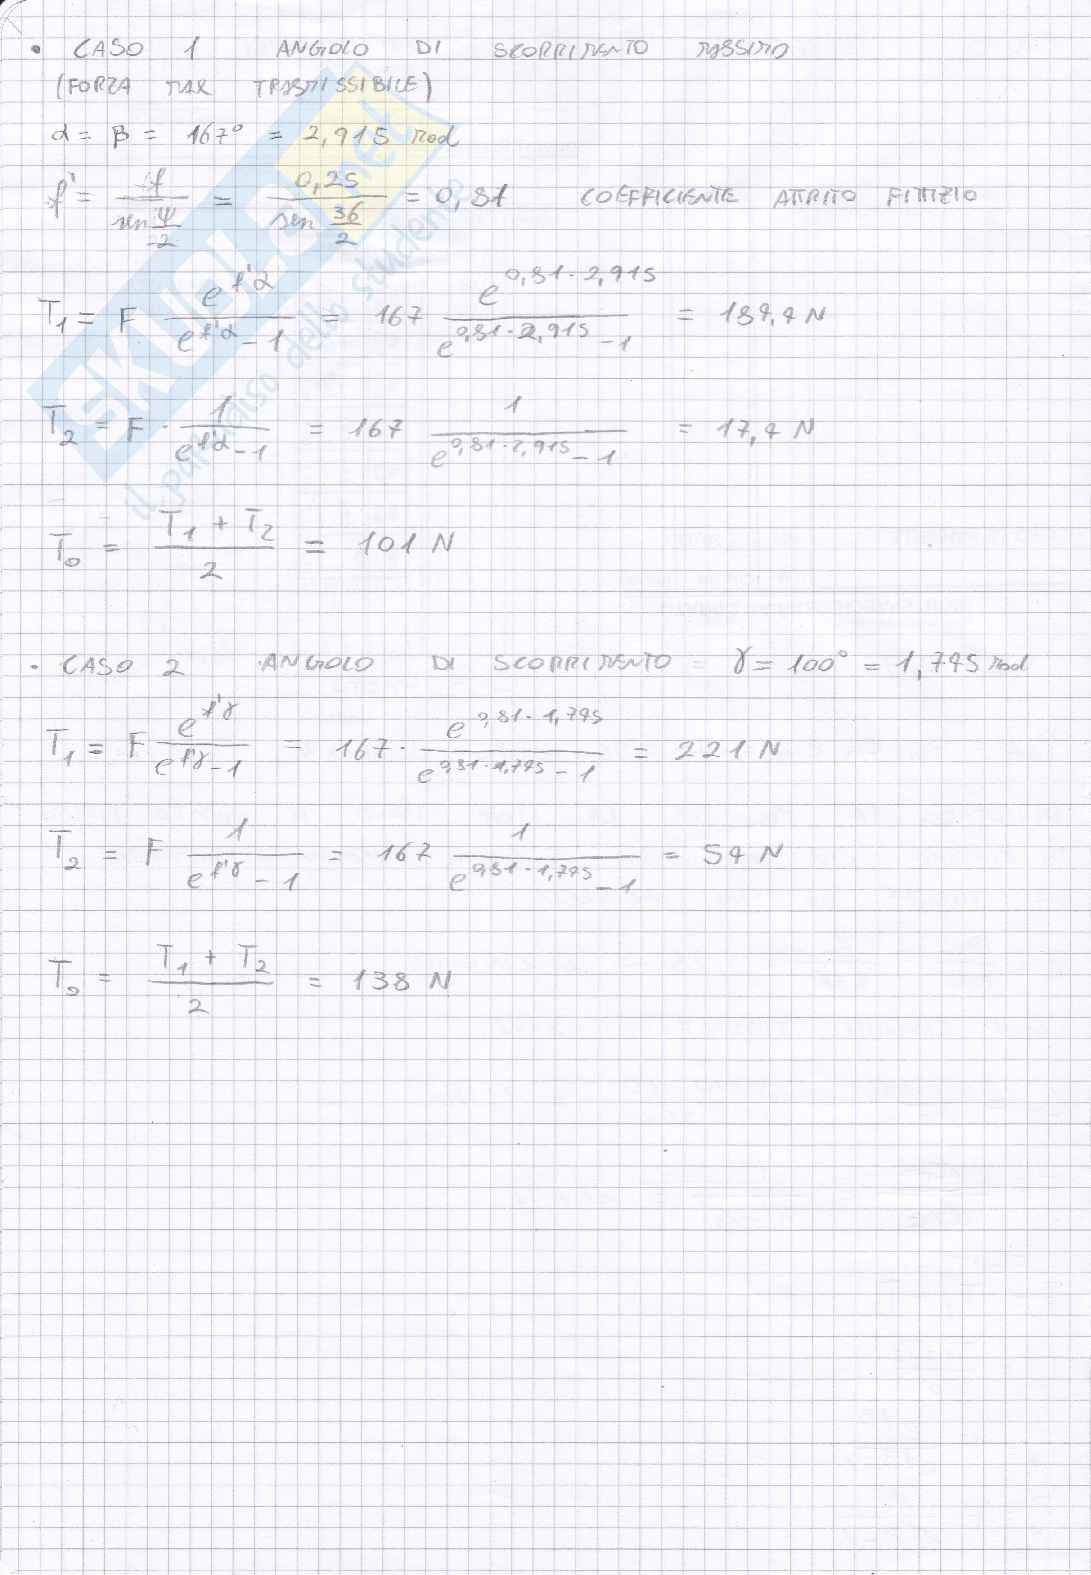 • CASO 1 ANGOLO DI SCORRIMENTO MASSIMO
(FORZA MAX TRASMISSIBILE)
α = β = 167° = 2,915 rad
f' = f / sen ψ/2 = 0,25 / sen 36/2 = 0,81 COEFFICIENTE ATTRITO FITTIZIO
T₁ = F e^{f'α} / (e^{f'α} - 1) = 167 e^{0,81·2,915} / (e^{0,81·2,915} - 1) = 184,4 N
T₂ = F · 1 / (e^{f'α} - 1) = 167 1 / (e^{0,81·2,915} - 1) = 17,4 N
T₀ = (T₁ + T₂) / 2 = 101 N
• CASO 2 ANGOLO DI SCORRIMENTO γ = 100° = 1,745 rad
T₁ = F e^{f'γ} / (e^{f'γ} - 1) = 167 · e^{0,81·1,745} / (e^{0,81·1,745} - 1) = 221 N
T₂ = F 1 / (e^{f'γ} - 1) = 167 1 / (e^{0,81·1,745} - 1) = 54 N
T₀ = (T₁ + T₂) / 2 = 138 N
SKUOLA.net
il paradiso dello studente